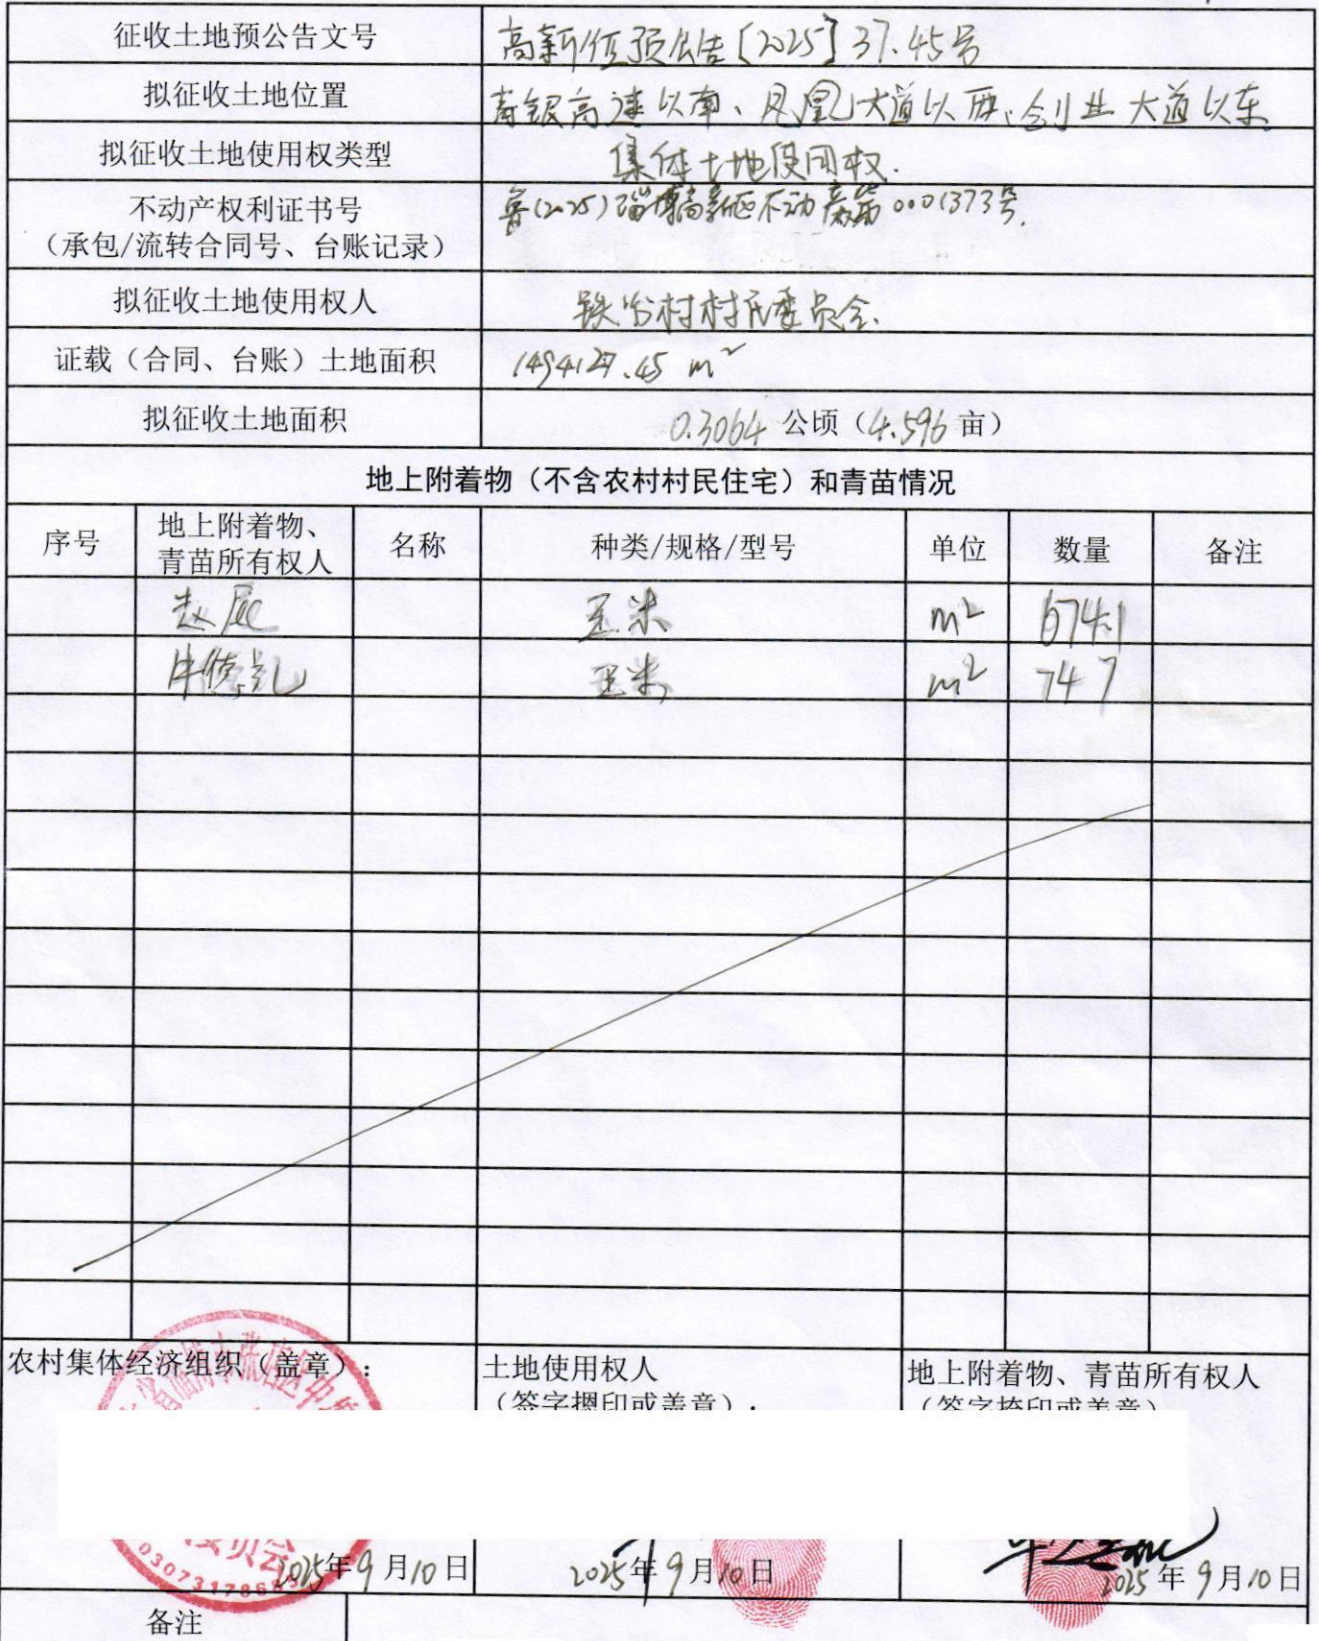 征收土地预公告文号 高新征预公告[2025]37.45号
拟征收土地位置 青银高速以南、凤凰大道以西、创业大道以东
拟征收土地使用权类型 集体土地使用权.
不动产权利证书号
（承包/流转合同号、台账记录） 鲁(2025)淄博高新区不动产第0001373号.
拟征收土地使用权人 铁冶村村民委员会.
证载（合同、台账）土地面积 149412.45 m²
拟征收土地面积 0.3064 公顷（4.596 亩）
地上附着物（不含农村村民住宅）和青苗情况
序号 地上附着物、青苗所有权人 名称 种类/规格/型号 单位 数量 备注
赵 玉米 m² 674.1
牛 玉米 m² 747
农村集体经济组织（盖章）：
土地使用权人
（签字摁印或盖章）：
地上附着物、青苗所有权人
（签字按印或盖章）
2025年9月10日
2025年9月10日
2025年9月10日
备注